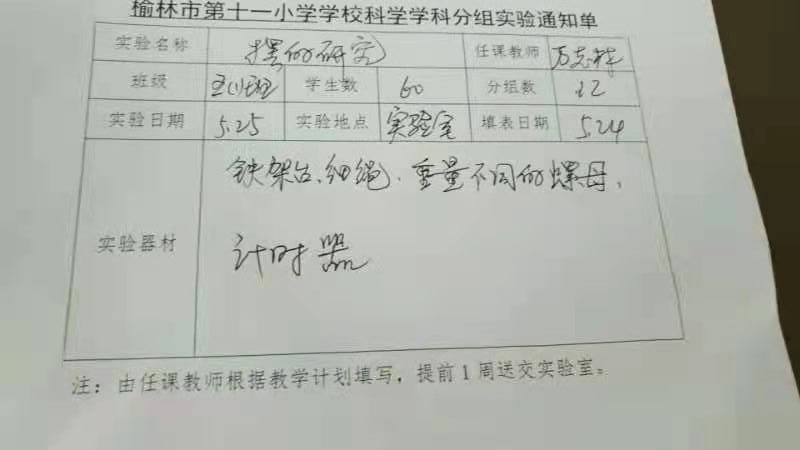 榆林市第十一小学学校科学学科分组实验通知单
实验名称 摆的研究 任课教师
班级 五(1)班 学生数 60 分组数 12
实验日期 5.25 实验地点 实验室 填表日期 5.24
铁架台、细绳、重量不同的螺母、
实验器材
计时器
注：由任课教师根据教学计划填写，提前1周送交实验室。